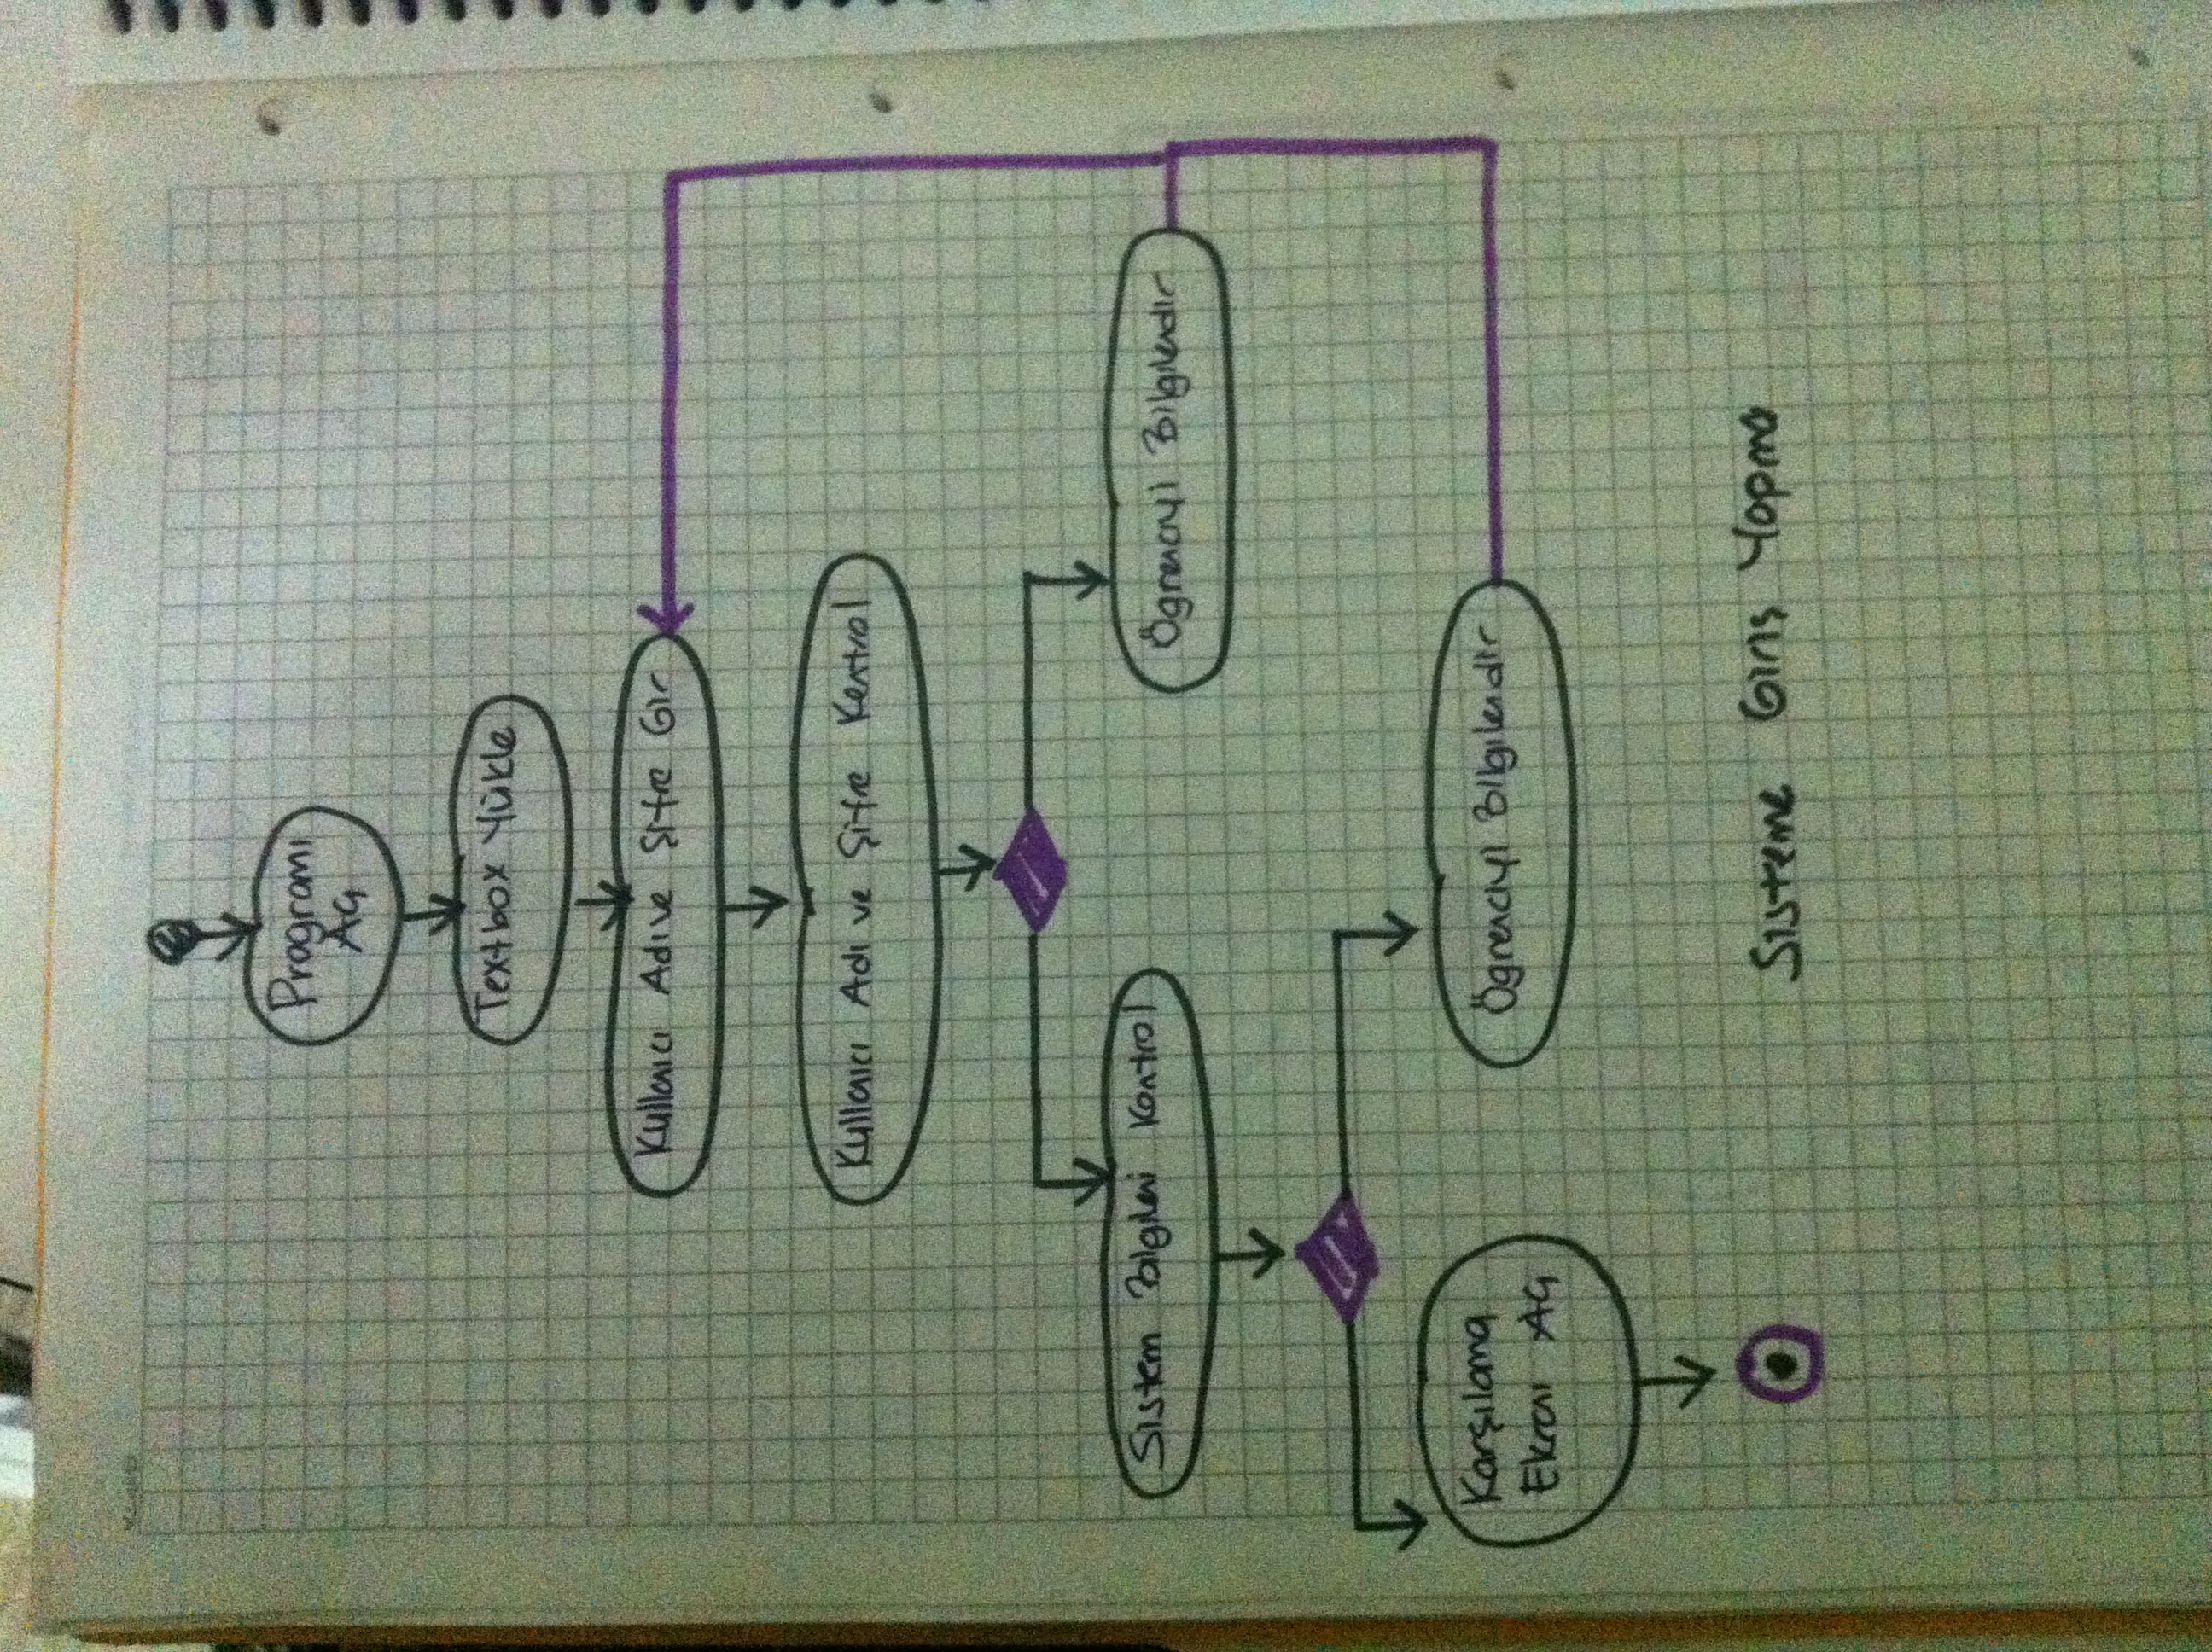 Programı
Aç
Textbox Yükle
Kullanıcı Adı ve Şifre Gir
Kullanıcı Adı ve Şifre Kontrol
Sistem Bilgileri Kontrol
Öğrenciyi Bilgilendir
Karşılama
Ekranı Aç
Öğrenciyi Bilgilendir
Sisteme Giriş Yapma